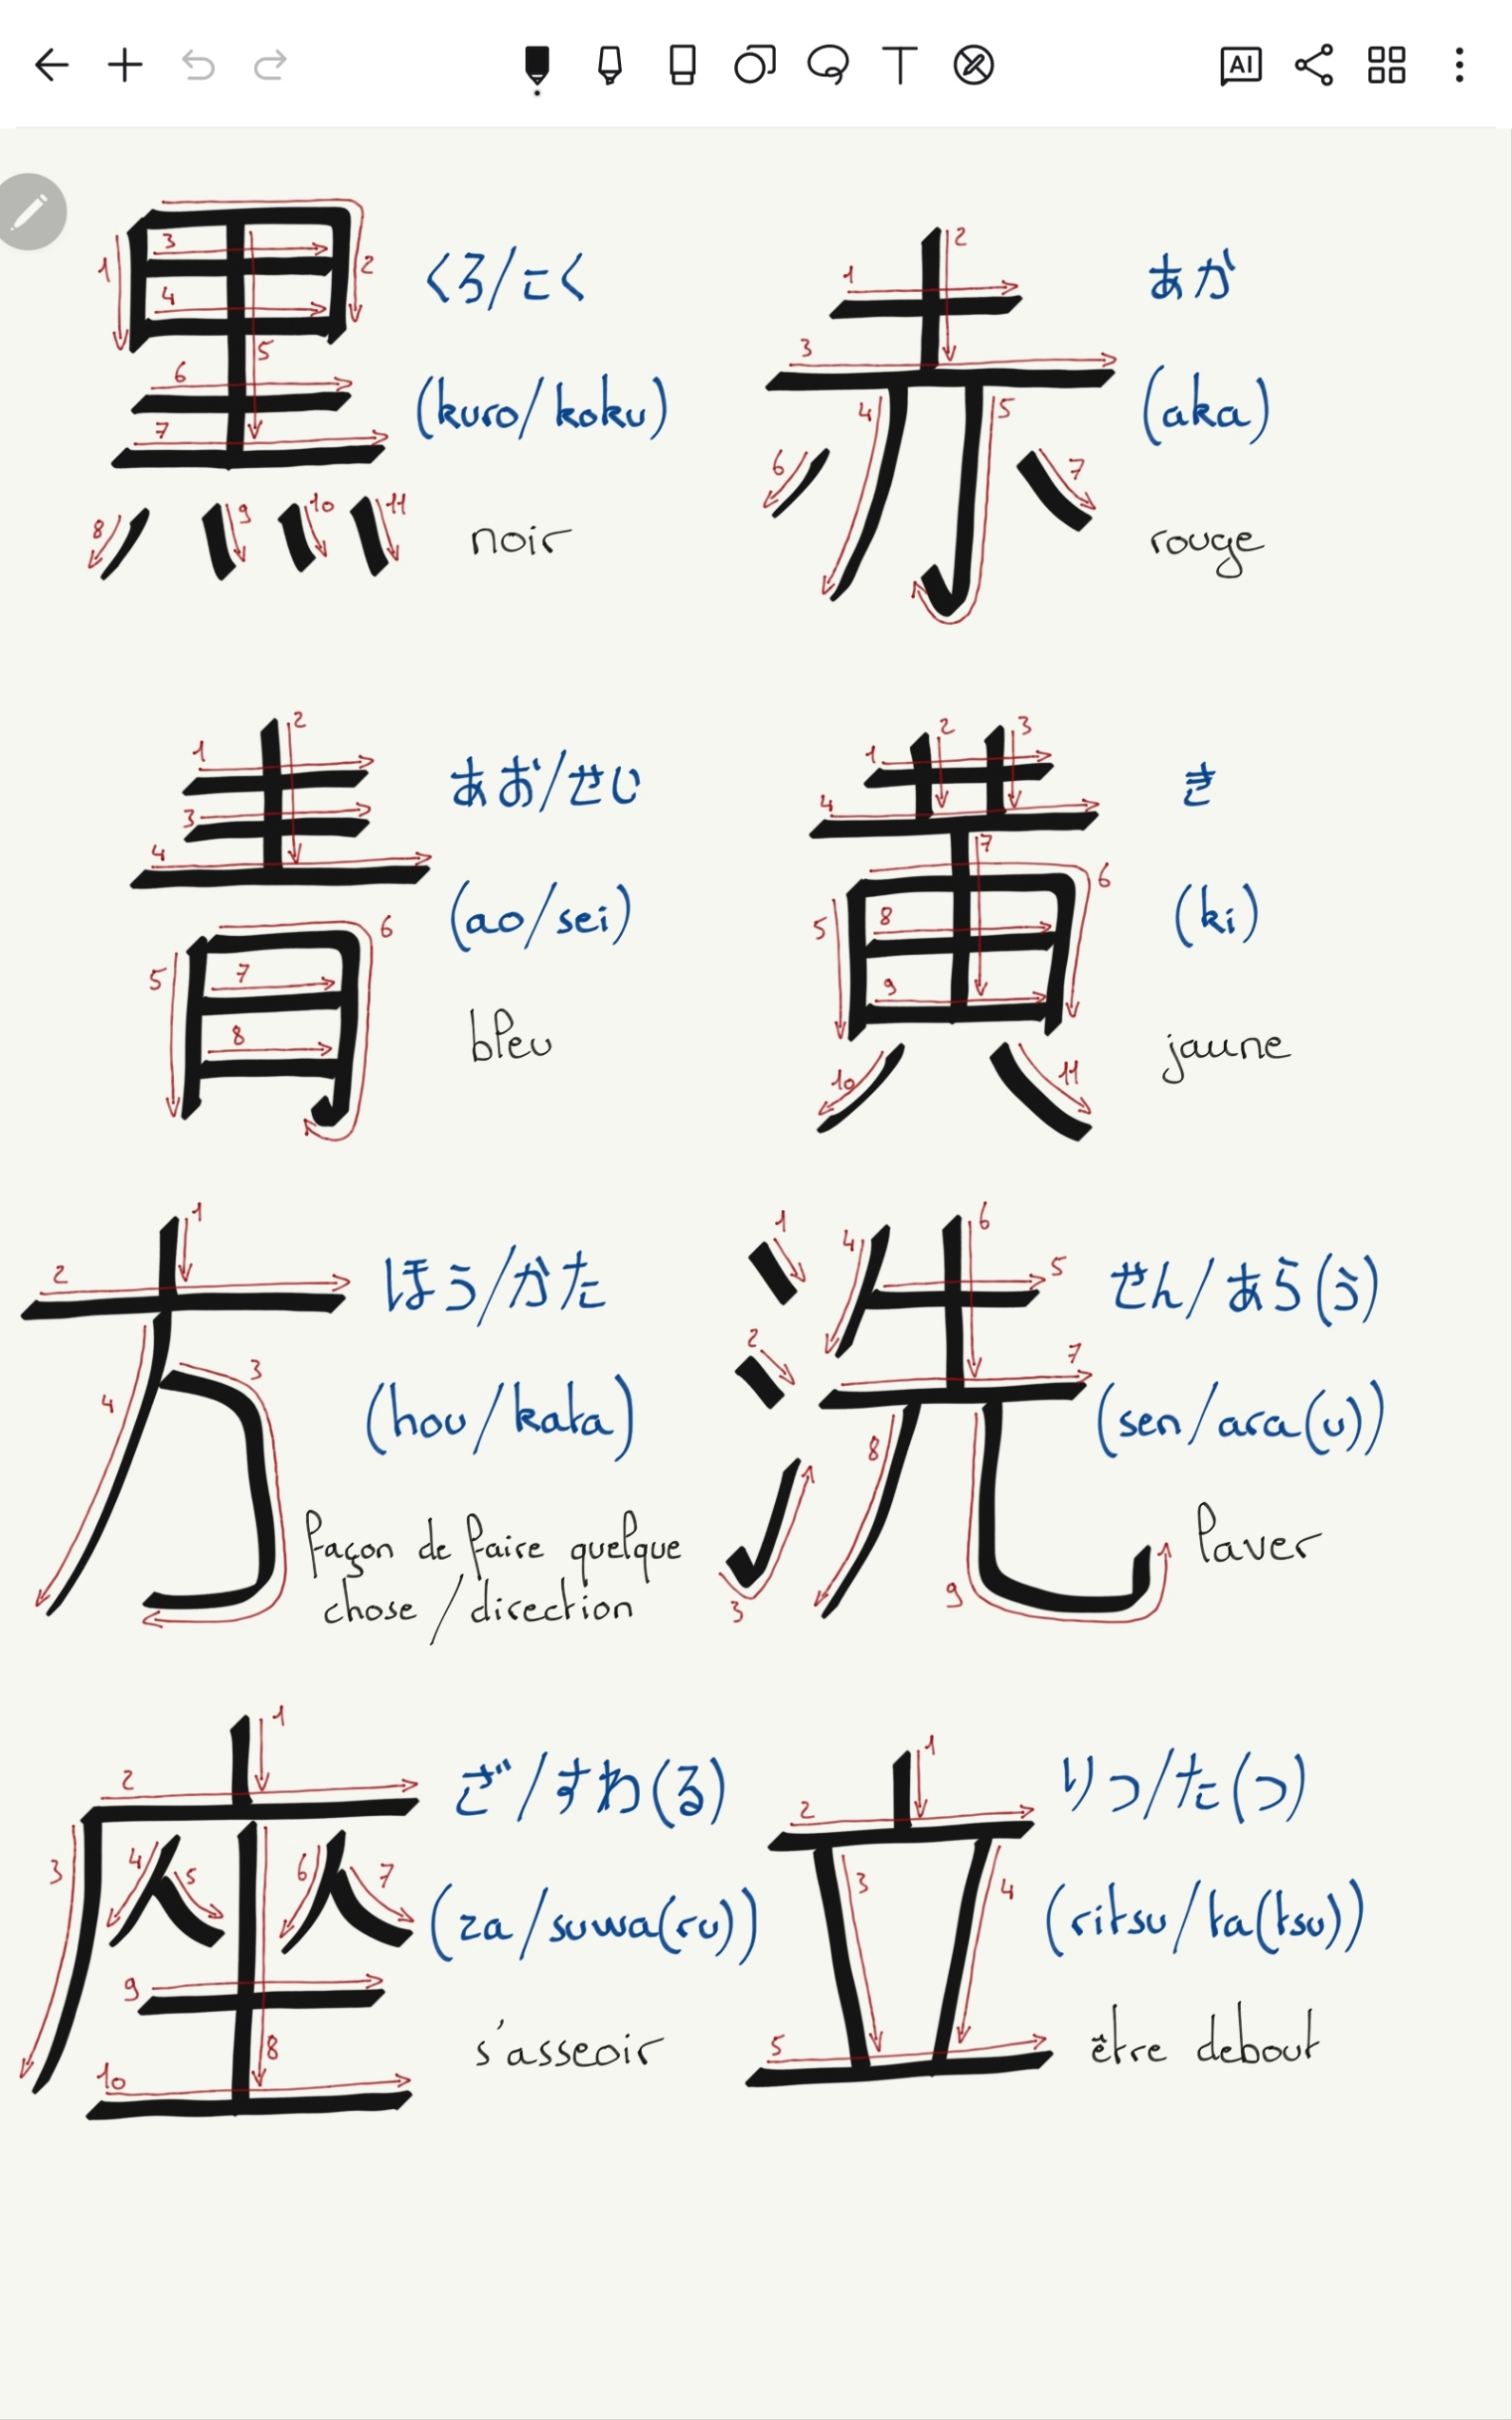 AI
黒
1
2
3
4
5
6
7
8
9
10
11
くろ/こく
(kuro/koku)
noir
赤
1
2
3
4
5
6
7
あか
(aka)
rouge
青
1
2
3
4
5
6
7
8
あお/せい
(ao/sei)
bleu
黄
1
2
3
4
5
6
7
8
9
10
11
き
(ki)
jaune
方
1
2
3
4
ほう/かた
(hou/kata)
façon de faire quelque
chose/direction
洗
1
2
3
4
5
6
7
8
9
せん/あら(う)
(sen/ara(u))
laver
座
1
2
3
4
5
6
7
8
9
10
ざ/すわ(る)
(za/suwa(ru))
s'asseoir
立
1
2
3
4
5
りつ/た(つ)
(ritsu/ta(tsu))
être debout